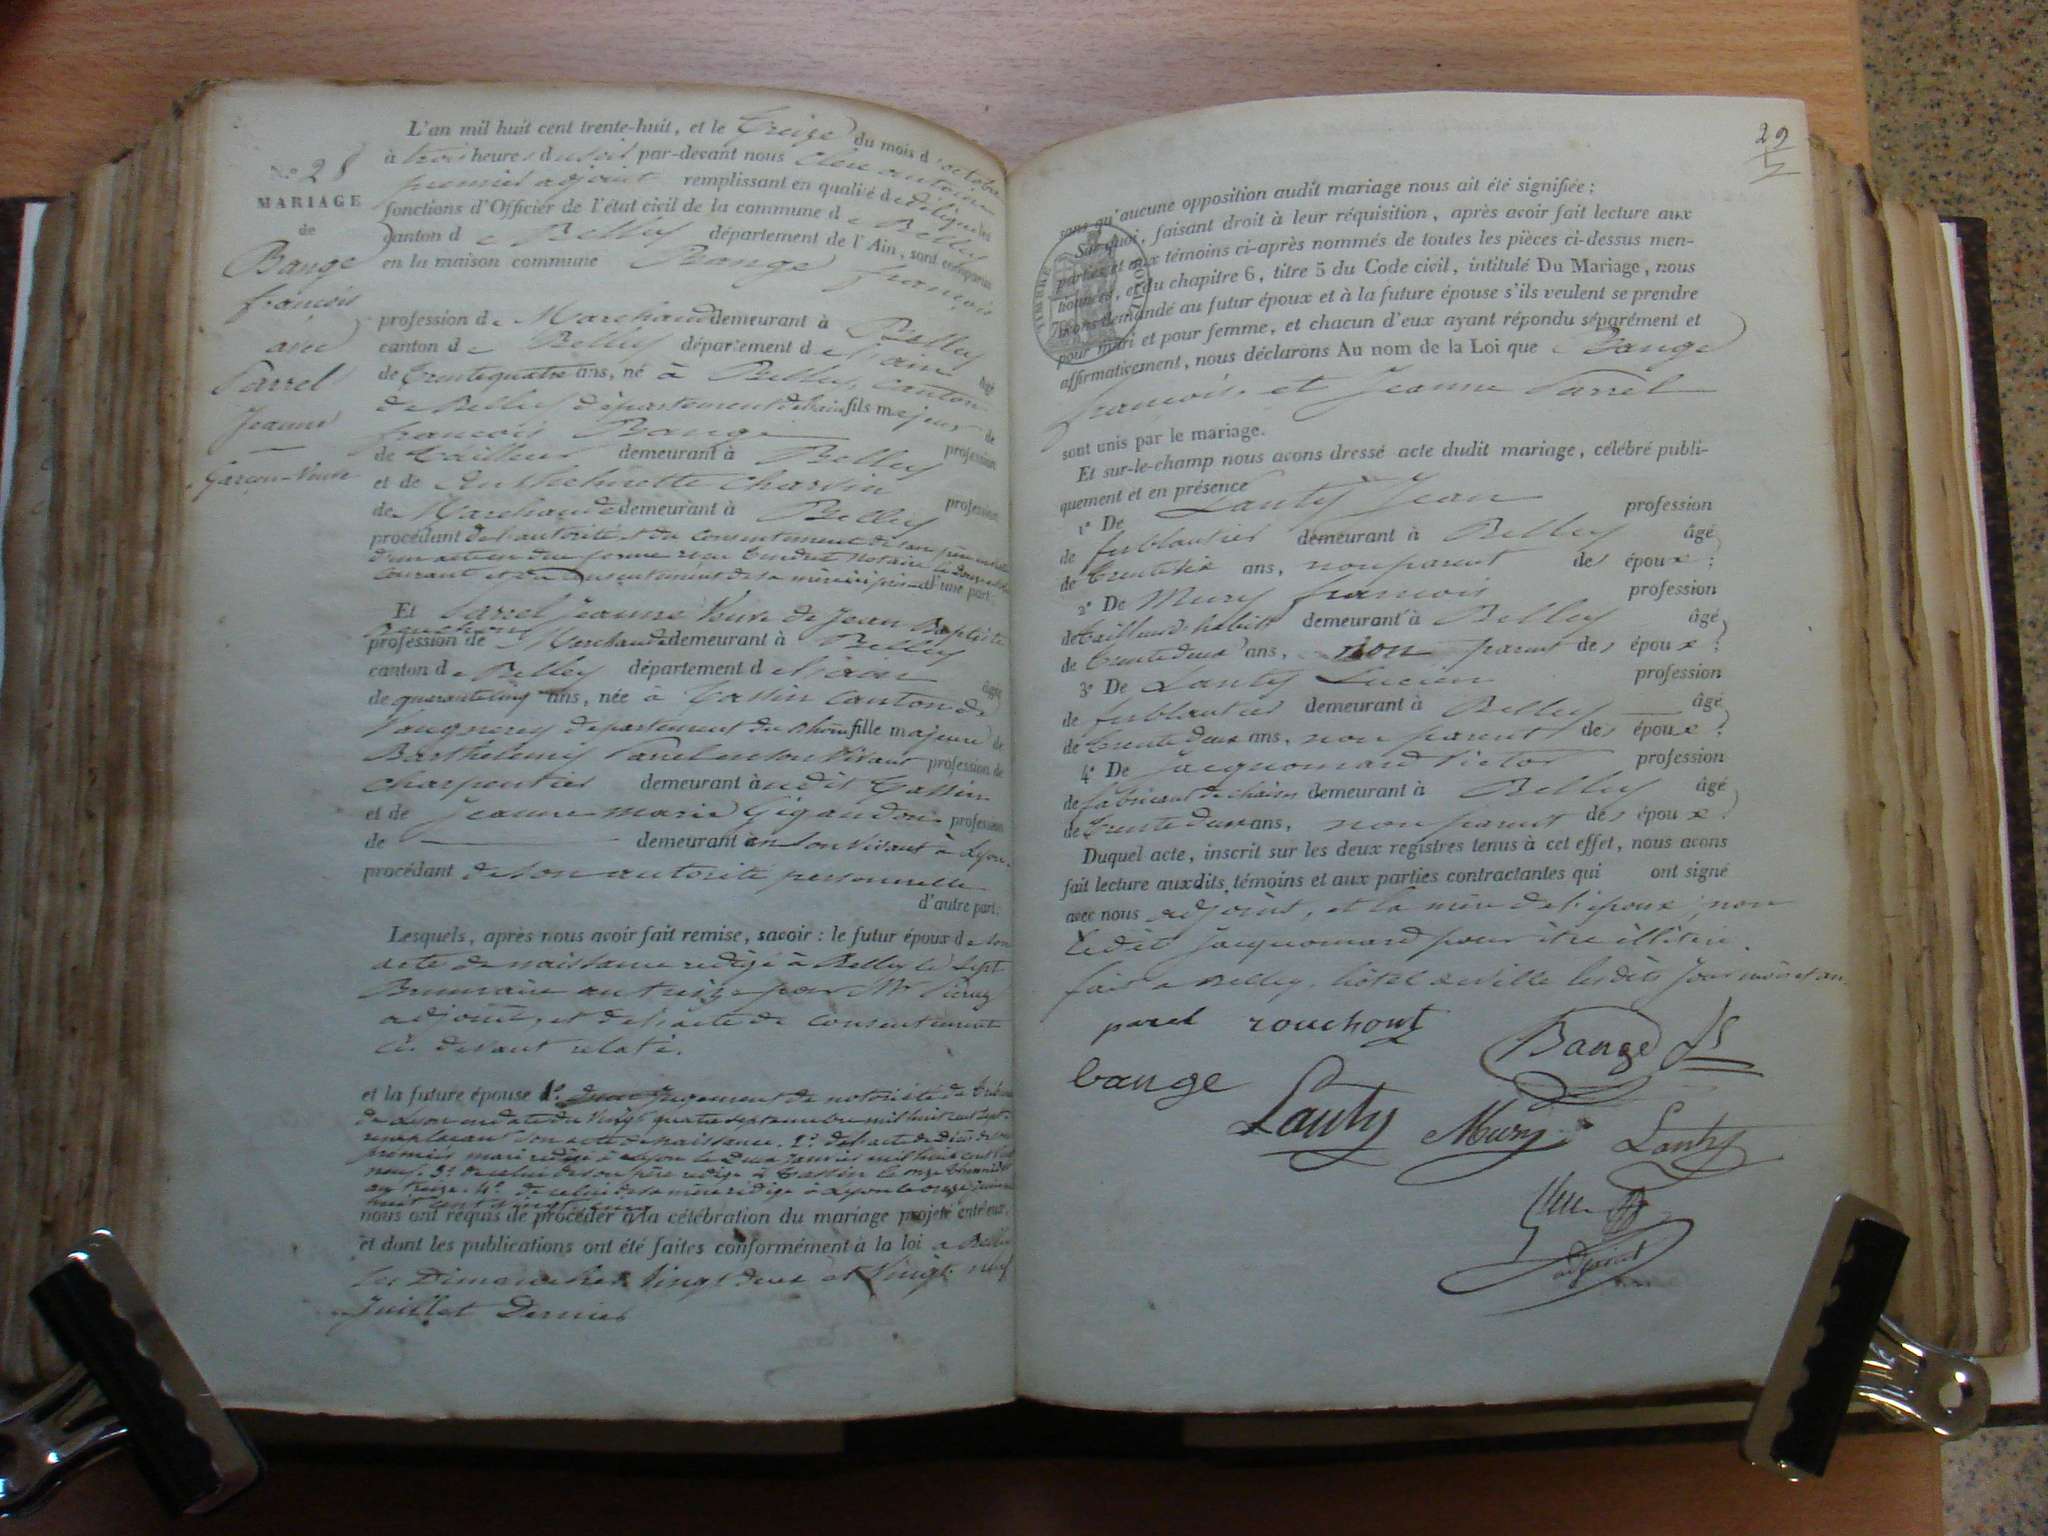 N.o 28
MARIAGE
de
Bange
françois
ainé
Parrel
Jeanne
Garçon-Veuve
L'an mil huit cent trente-huit, et le treize du mois d'octobre
à trois heures du soir par-devant nous
premier adjoint remplissant en qualité de délégué les
fonctions d'Officier de l'état civil de la commune de Belley
canton de Belley département de l'Ain, sont comparus
en la maison commune Bange françois
profession de Marchand demeurant à Belley
canton de Belley département de l'ain âgé
de trente quatre ans, né à Belley, canton
de Belley département de l'ain fils majeur de
françois Bange profession
de tailleur demeurant à Belley
et de Anthelmette Charvin profession
de Marchande demeurant à Belley
procédant de l'autorité et du consentement de son père
d'un acte en due forme reçu notaire le douze
courant et du consentement de sa mère ici présente d'une part.
Et Parrel Jeanne Veuve de Jean Baptiste
Rouchon
profession de Marchande demeurant à Belley
canton de Belley département de l'ain âgée
de quarante cinq ans, née à Tassin canton de
Vaugneray département du rhône fille majeure de
Barthélemy Parrel en son vivant profession de
charpentier demeurant audit Tassin
et de Jeanne marie Gigandon profession
de demeurant en son vivant à Lyon.
procédant de son autorité personnelle
d'autre part.
Lesquels, après nous avoir fait remise, savoir : le futur époux de son
acte de naissance rédigé à Belley le sept
Brumaire an treize par Mr
adjoint, et de l'acte de consentement
ci devant relaté.
et la future épouse 1.o Jugement de notoriété du tribunal
de Lyon en date du vingt quatre septembre mil huit cent sept
remplaçant son acte de naissance. 2.o de l'acte de décès de son
premier mari rédigé à Lyon le deux Janvier mil huit cent
neuf. 3.o de celui de son père rédigé à Tassin le onze thermidor
an treize. 4.o de celui de sa mère rédigé à Lyon le onze
huit cent
nous ont requis de procéder à la célébration du mariage projeté entr'eux,
et dont les publications ont été faites conformément à la loi à Belley
les Dimanches vingt deux et vingt neuf
Juillet Dernier
29
TIMBRE ROYAL
sans qu'aucune opposition audit mariage nous ait été signifiée ;
Sur quoi, faisant droit à leur réquisition, après avoir fait lecture aux
parties et aux témoins ci-après nommés de toutes les pièces ci-dessus men-
tionnées, et du chapitre 6, titre 5 du Code civil, intitulé Du Mariage, nous
avons demandé au futur époux et à la future épouse s'ils veulent se prendre
pour mari et pour femme, et chacun d'eux ayant répondu séparément et
affirmativement, nous déclarons Au nom de la Loi que Bange
françois, et Jeanne Parrel
sont unis par le mariage.
Et sur-le-champ nous avons dressé acte dudit mariage, célébré publi-
quement et en présence
1.o De Lanty Jean profession
de ferblantier demeurant à Belley âgé
de trente six ans, non parent des époux ;
2.o De Mury françois profession
de tailleur d'habits demeurant à Belley âgé
de trente deux ans, non parent des époux ;
3.o De Lanty Lucien profession
de ferblantier demeurant à Belley âgé
de trente deux ans, non parent des époux ;
4.o De Jacquomard Victor profession
de fabricant de chaises demeurant à Belley âgé
de trente deux ans, non parent des époux.
Duquel acte, inscrit sur les deux registres tenus à cet effet, nous avons
fait lecture auxdits témoins et aux parties contractantes qui ont signé
avec nous adjoint, et la mère de l'époux, non
ledit Jacquomard pour être illitéré.
fait à Belley, hôtel de ville lesdits Jour mois et an
parel rouchont Bange fs
bange Lanty Mury Lanty
adjoint